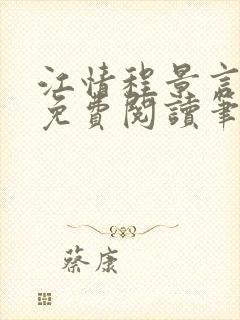 江情程景言
免費閱讀筆
蔡康